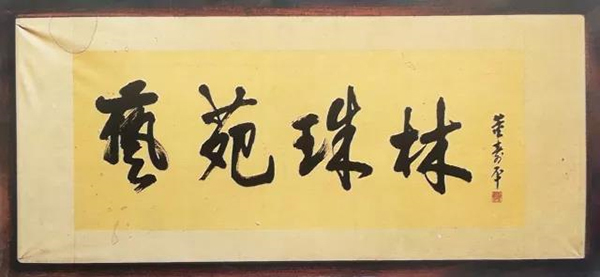 藝苑珠林
董寿平